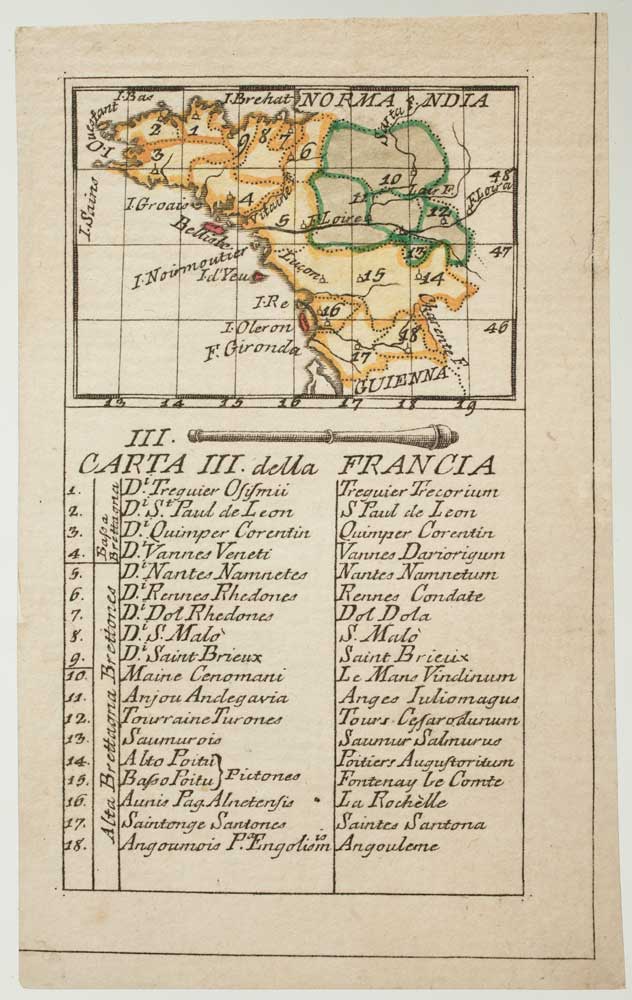 I. Bas
I. Brehat
NORMA NDIA
Sarta F.
O. I
Questant
2
1
9
8
7
6
3
4
Vitaine F.
10
48
Loir F.
F. Loira
I. Sains
I. Groais
11
12
Bellisle
5
F. Loire
47
I. Noirmoutier
Luçon
13
I. d'Yeu
15
14
I. Re
16
Charente F.
I. Oleron
46
18
F. Gironda
17
GUIENNA
13 14 15 16 17 18 19
III.
CARTA III. della FRANCIA
Bassa Brettagna
1. D.i Treguier Osismii Treguier Trecorium
2. D.i S.t Paul de Leon S Paul de Leon
3. D.i Quimper Corentin Quimper Corentin
4. D.i Vannes Veneti Vannes Dariorigum
Alta Brettagna Brettones
5. D.i Nantes Namnetes Nantes Namnetum
6. D.i Rennes Rhedones Rennes Condate
7. D.i Dol Rhedones Dol Dola
8. D.i S. Malò S. Malò
9. D.i Saint Brieux Saint Brieux
10. Maine Cenomani Le Mans Vindinum
11. Anjou Andegavia Anges Iuliomagus
12. Tourraine Turones Tours Cesarodunum
13. Saumurois Saumur Salmurus
14. Alto Poitu } Pictones Poitiers Augustoritum
15. Basso Poitu } Fontenay Le Comte
16. Aunis Pag. Alnetensis La Rochèlle
17. Saintonge Santones Saintes Santona
18. Angoumois P.a Engolism.is Angouleme